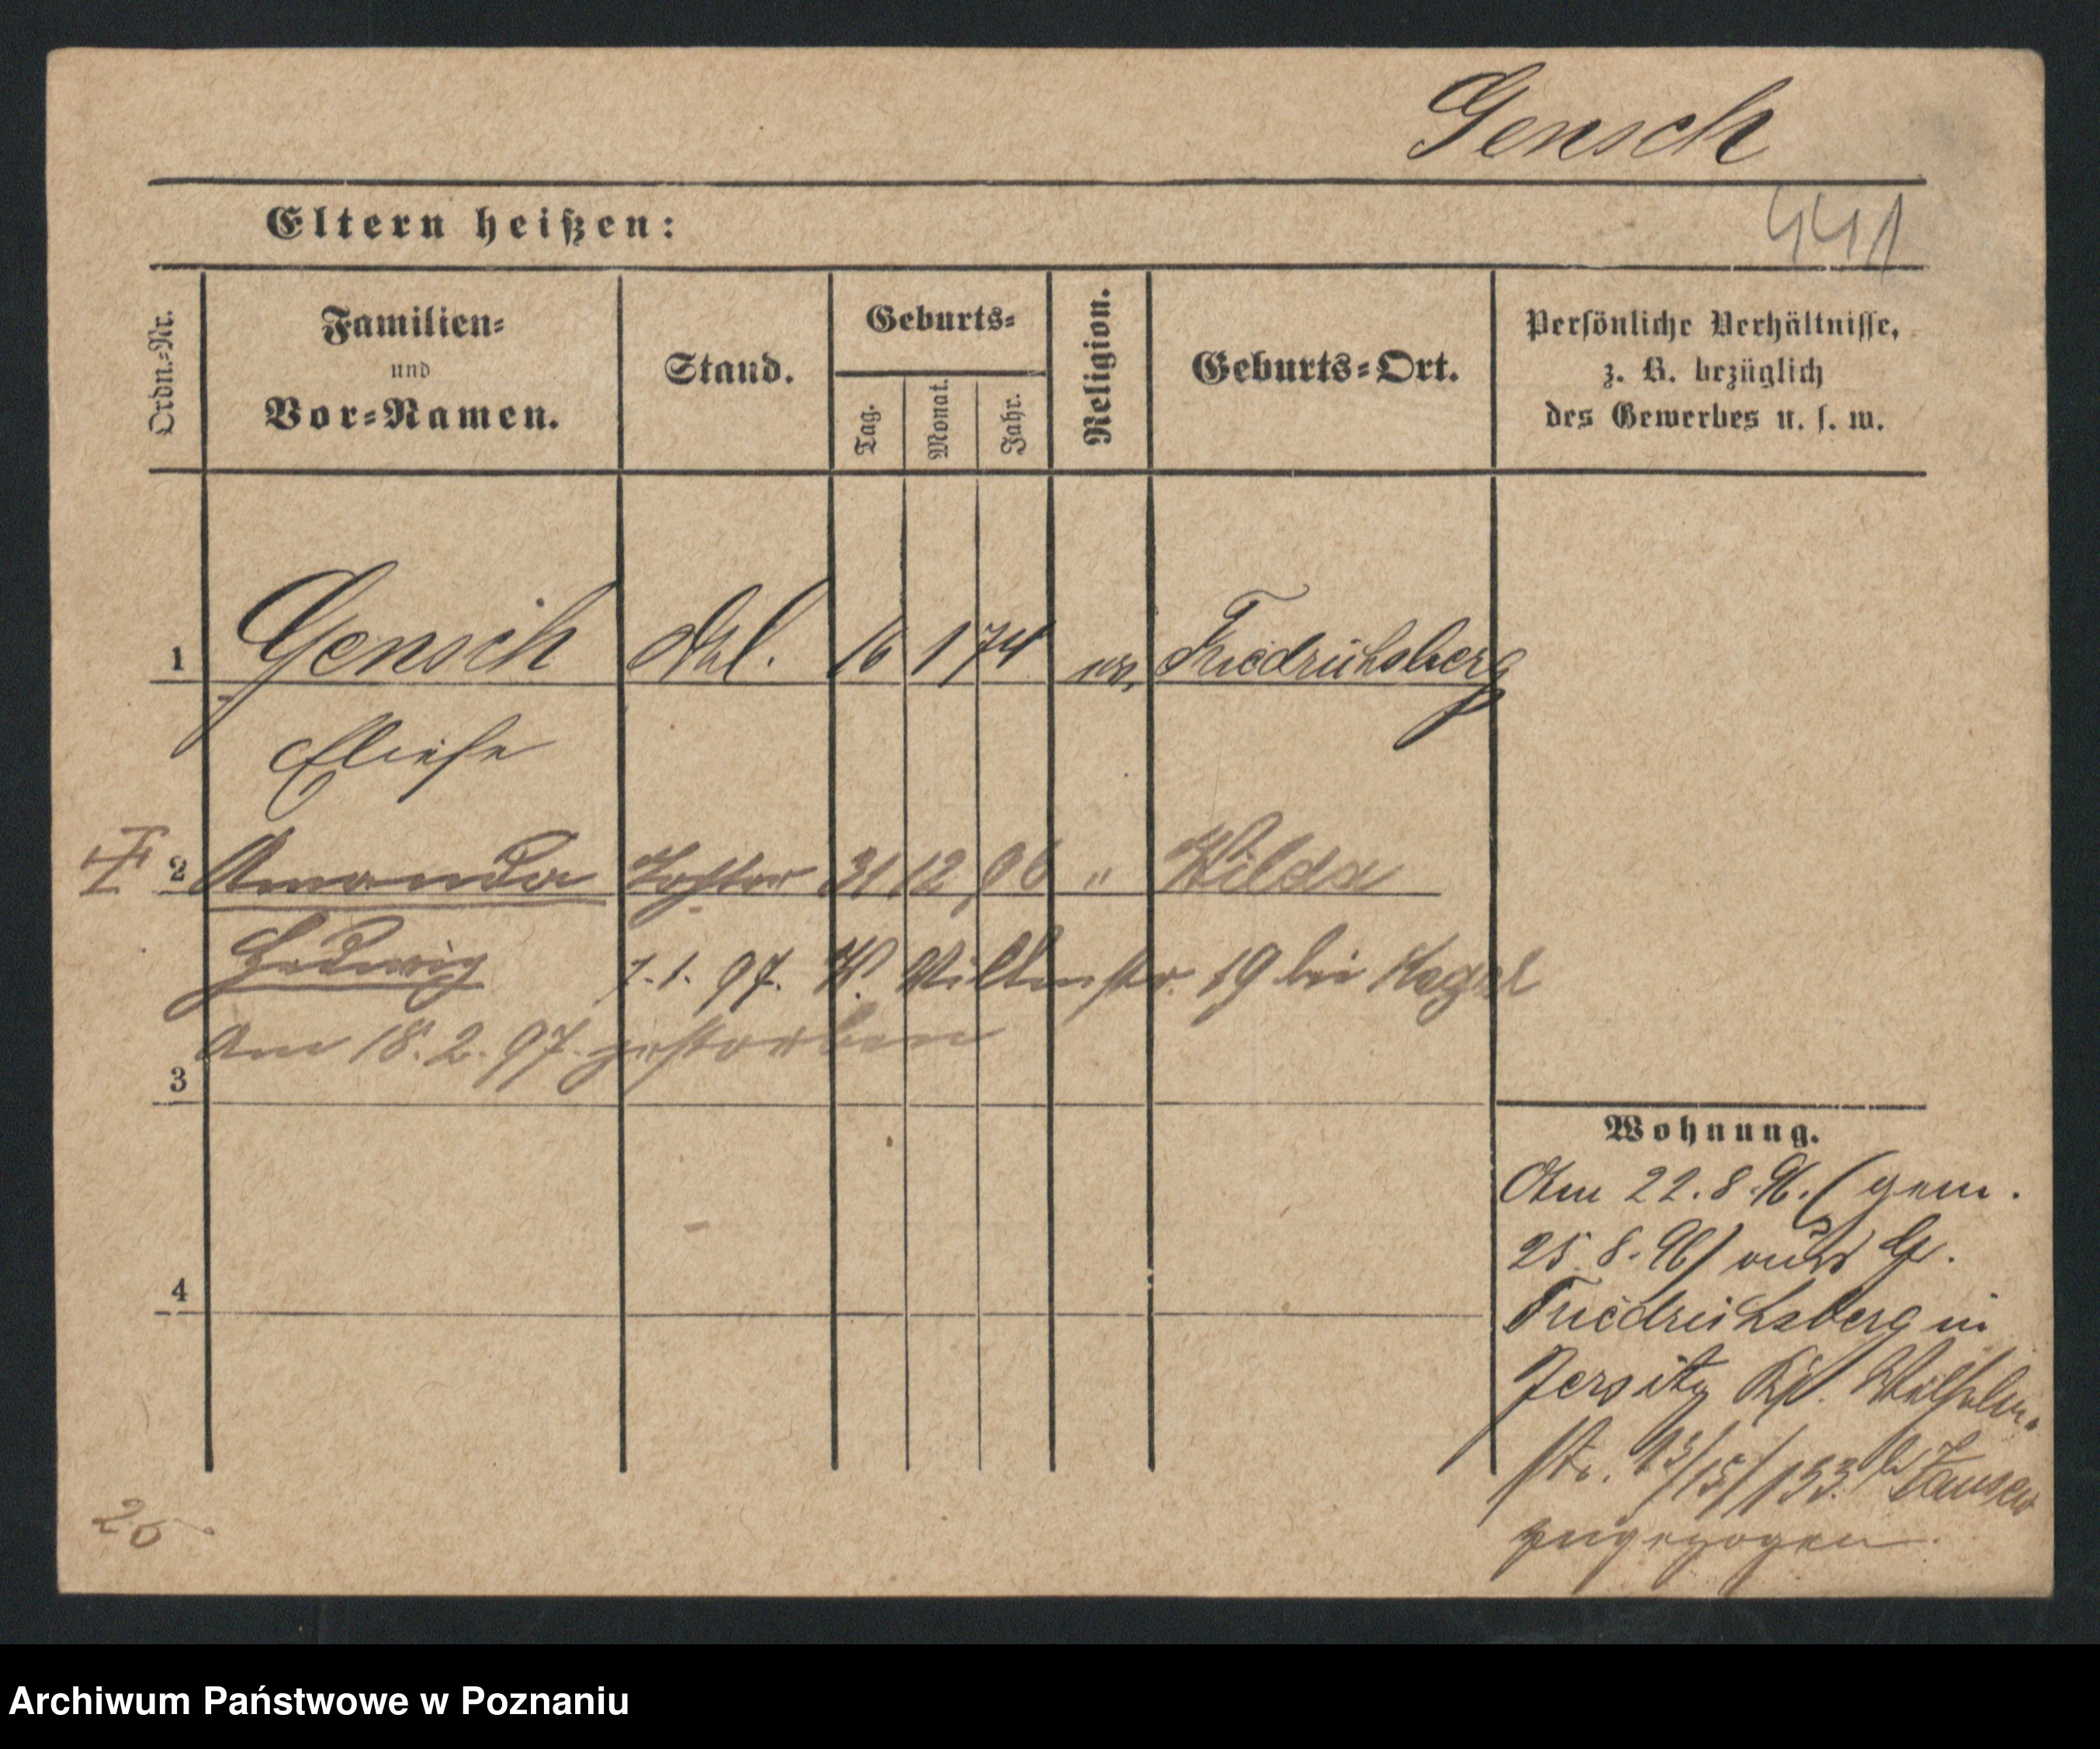 Gensch
441
Eltern heißen:
Ordn.-Nr.
Familien-
und
Vor-Namen.
Stand.
Geburts-
Tag.
Monat.
Jahr.
Religion.
Geburts-Ort.
Persönliche Verhältnisse,
z. B. bezüglich
des Gewerbes u. s. w.
1 Gensch 16 1 74 ev. Friedrichsberg
Eliese
2 Amanda Tochter 31 12 96 " Wilda
Hedwig 7.1.97. W. 19 bei Hagel
am 18.2.97 gestorben
3
Wohnung.
Am 22.8.96. (gem.
25.8.96) aus Gr.
4
Friedrichsberg in
Jersitz Wilhelm-
str. 13/15/133. b
zugezogen.
20
Archiwum Państwowe w Poznaniu